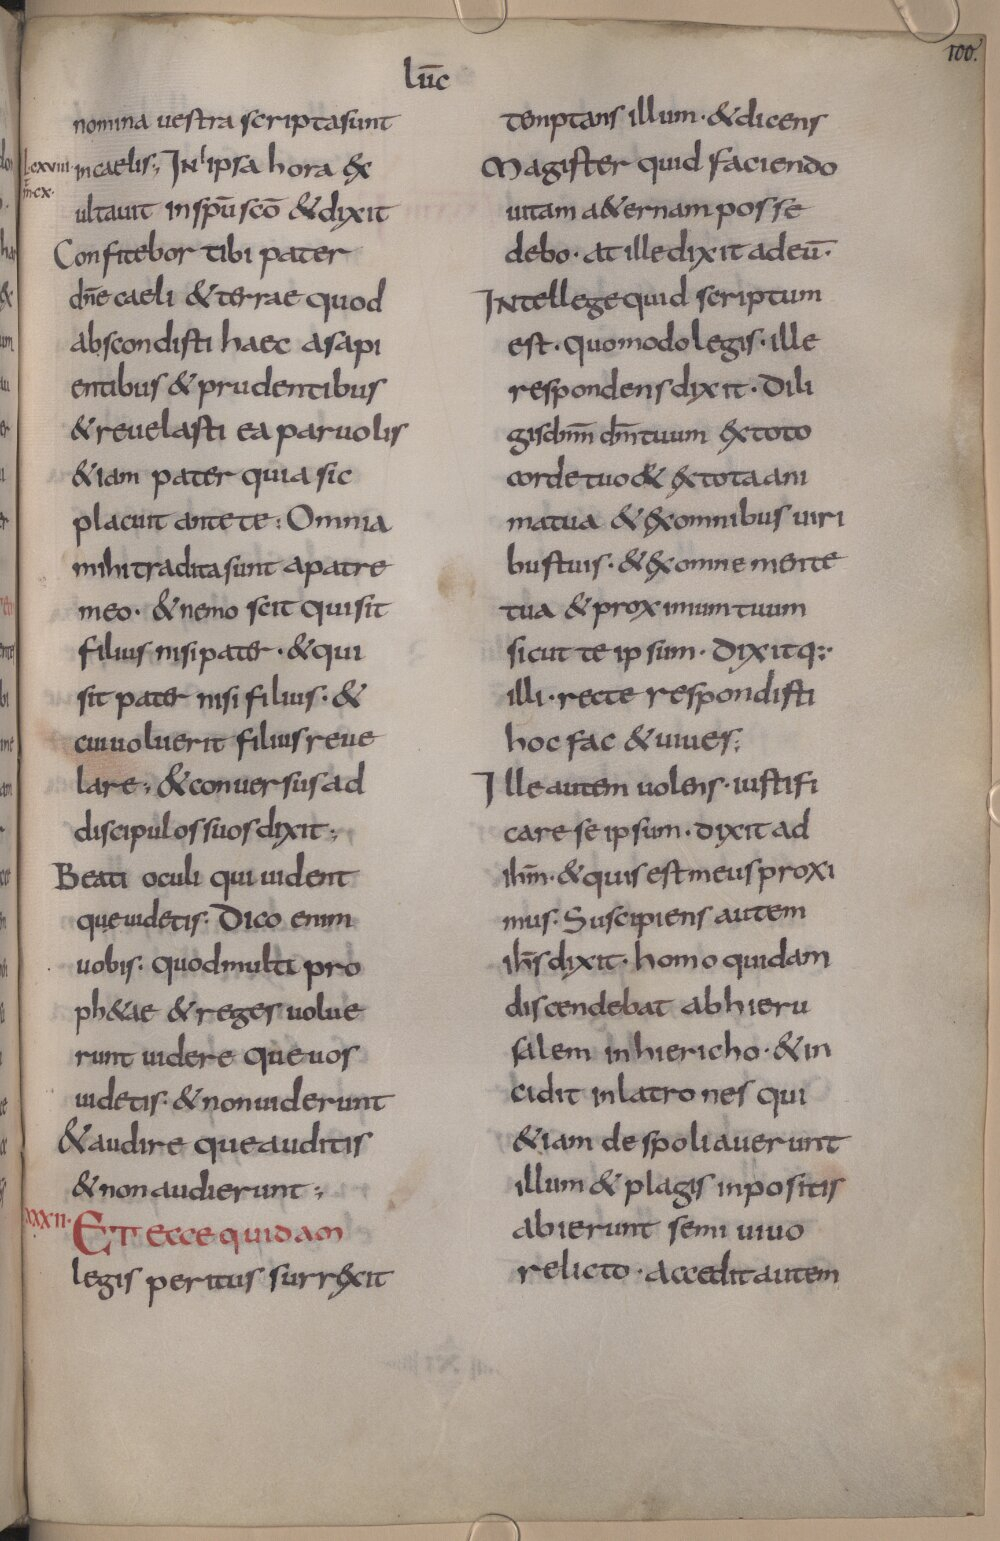 lūc
100.
nomina uestra scriptasunt
Lxviii
m̄cx.
incaelis; IN ipsa hora &x
ultauit inspū scō &dixit
Confitebor tibi pater
dn̄e caeli & terrae quod
abscondisti haec asapi
entibus & prudentibus
& reuelasti ea paruolis
&iam pater quia sic
placuit ante te: Omnia
mihi tradita sunt apatre
meo. & nemo scit qui sit
filius nisi pater. & qui
sit pater nisi filius. &
cui uoluerit filius reue
lare; & conuersus ad
discipulos suos dixit;
Beati oculi qui uident
que uidetis. Dico enim
uobis. quod multi pro
ph&ae & reges uolue
runt uidere que uos
uidetis. & non uiderunt
& audire que auditis
& non audierunt;
xxxii.
ET ecce quidam
legis peritus surr&xit
temptans illum. & dicens
Magister quid faciendo
uitam a&ernam posse
debo. at ille dixit ad eū.
INtellege quid scriptum
est. quomodo legis. ille
respondens dixit. Dili
gis dn̄m dm̄ tuum &x toto
corde tuo & &x tota ani
ma tua & &x omnibus uiri
bus tuis. & &x omne mente
tua & proximum tuum
sicut te ipsum. Dixitq;
illi. recte respondisti
hoc fac & uiues;
Ille autem uolens. iustifi
care se ipsum. dixit ad
ihm̄. & quis est meus proxi
mus. Suscipiens autem
ihs̄ dixit. homo quidam
discendebat ab hieru
salem in hiericho. & in
cidit in latrones qui
&iam despoliauerunt
illum & plagis inpositis
abierunt semi uiuo
relicto. accedit autem